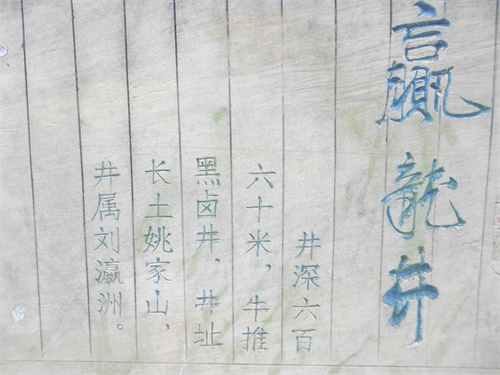 赢龍井
井深六百
六十米，牛推
黑卤井，井址
长土姚家山，
井属刘瀛洲。